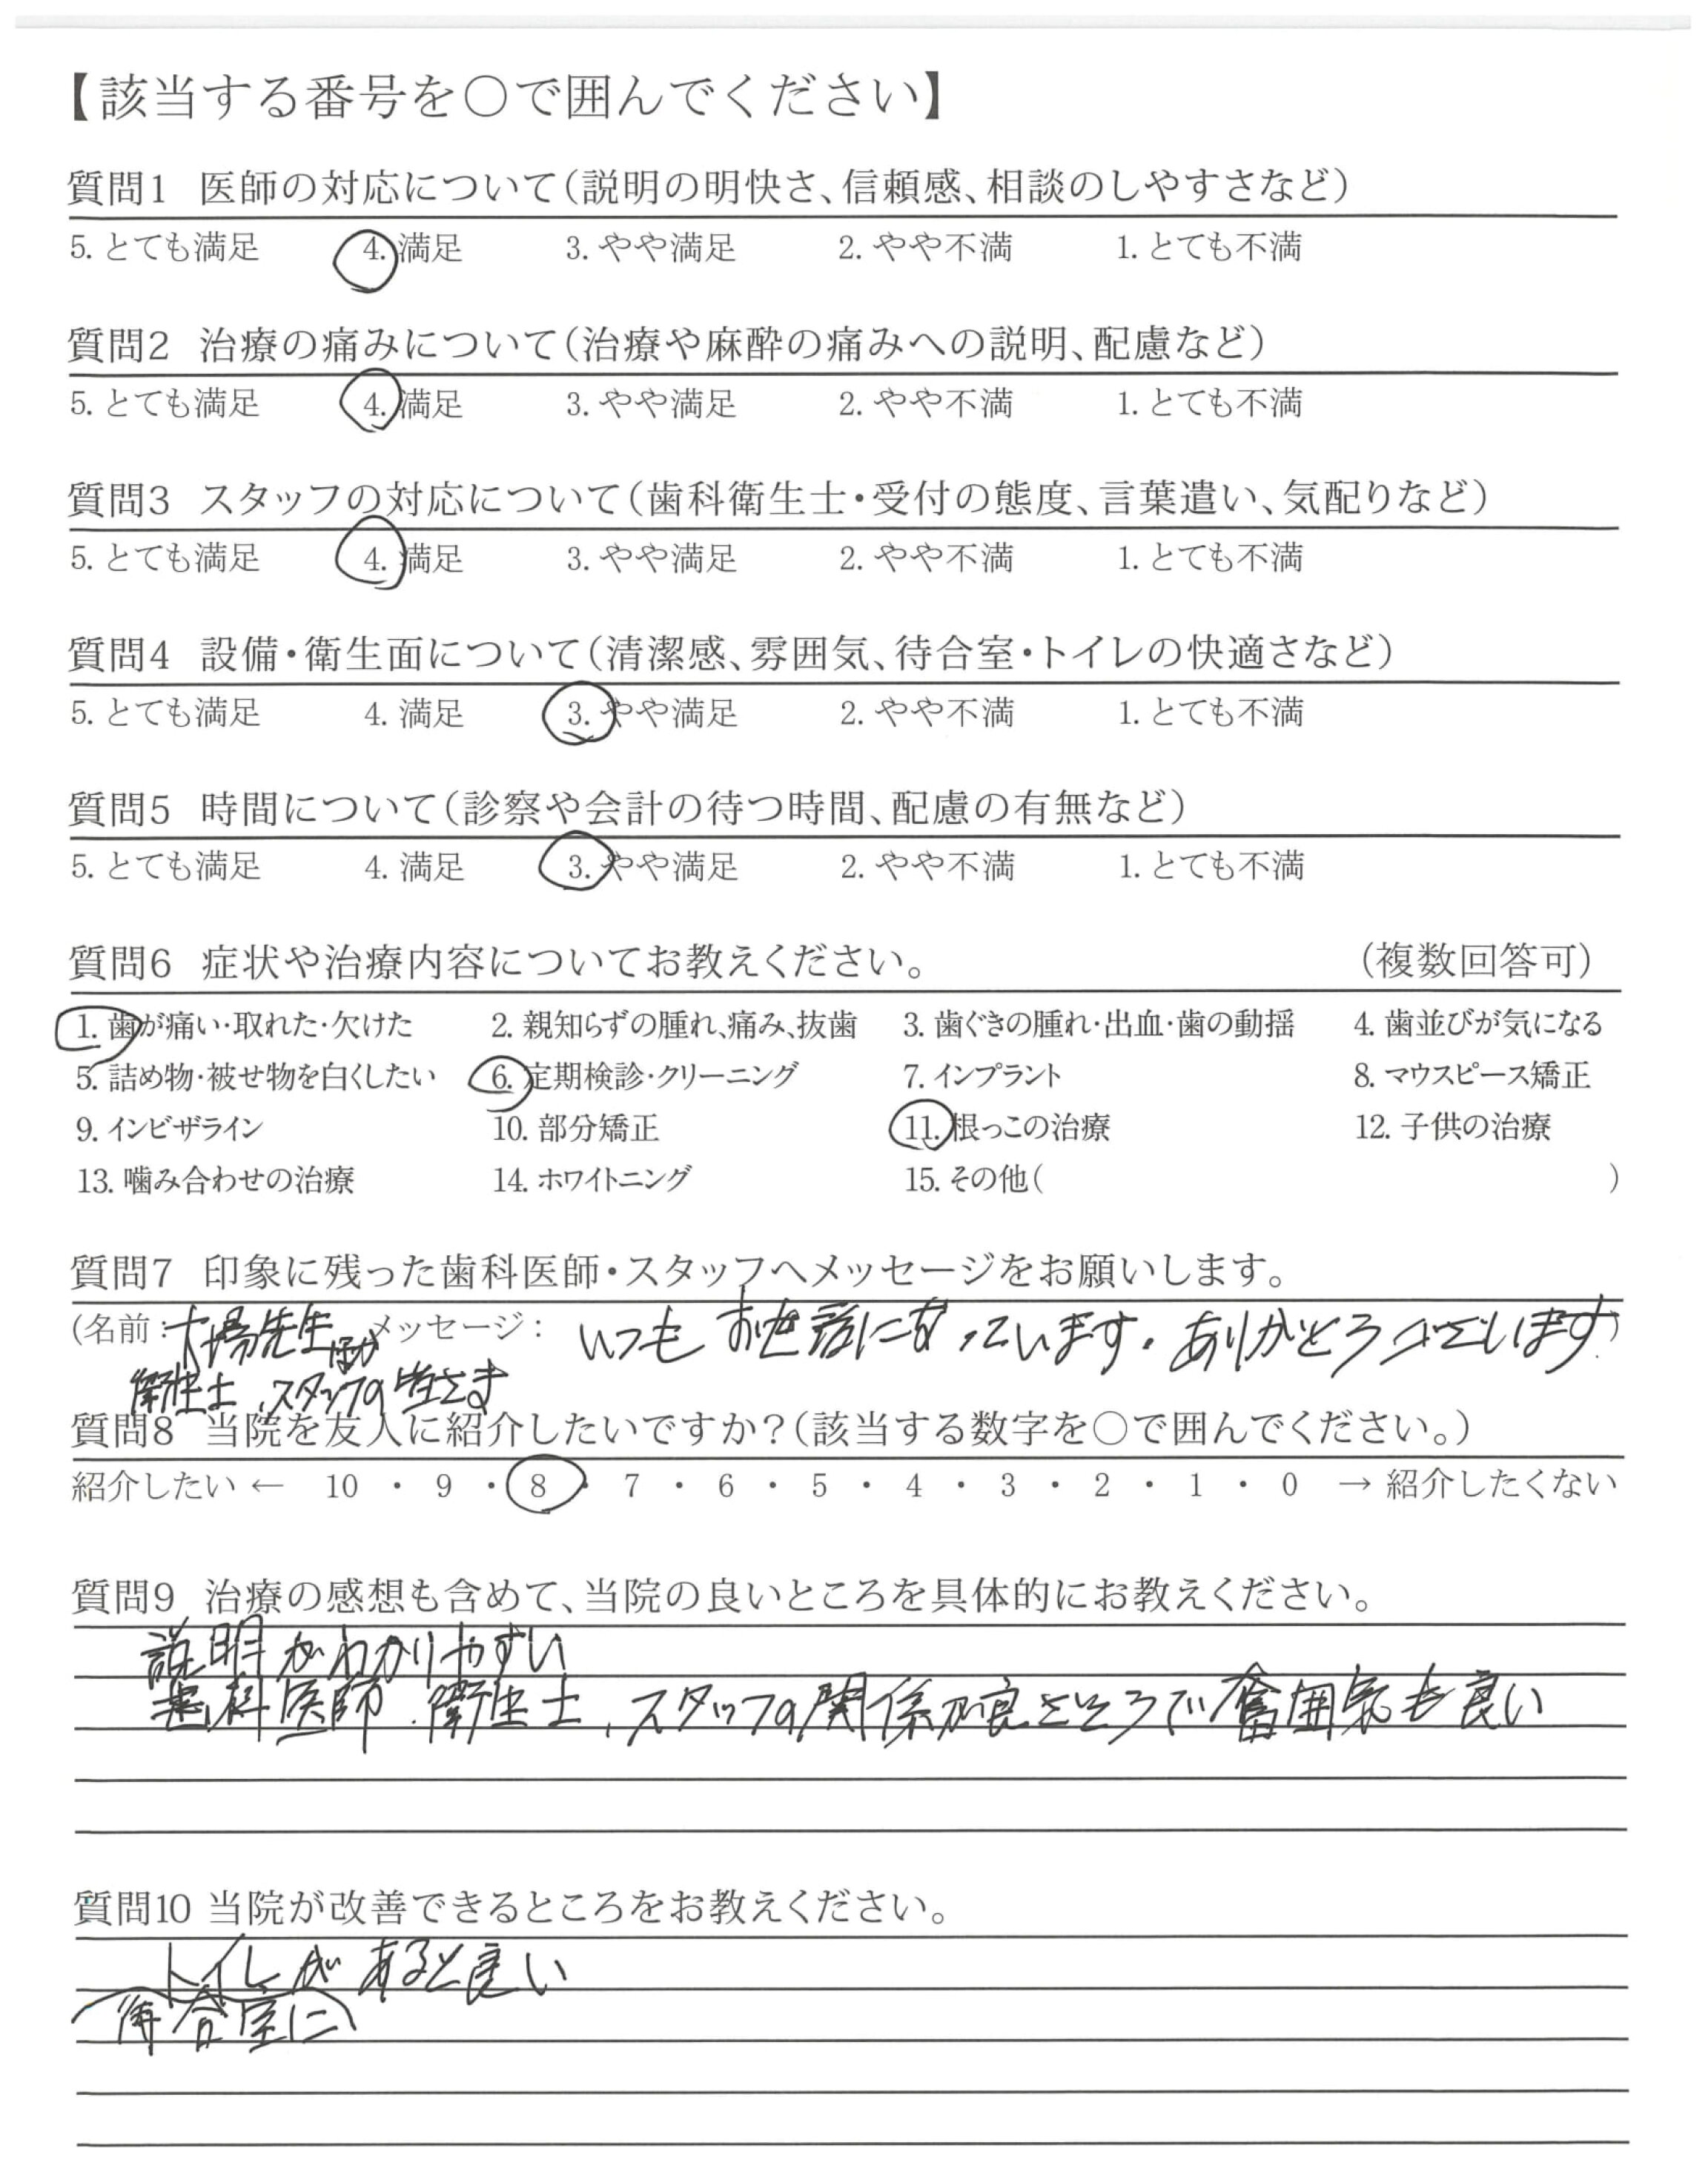 【該当する番号を〇で囲んでください】
質問1 医師の対応について(説明の明快さ、信頼感、相談のしやすさなど)
5. とても満足 4. 満足 3. やや満足 2. やや不満 1. とても不満
質問2 治療の痛みについて(治療や麻酔の痛みへの説明、配慮など)
5. とても満足 4. 満足 3. やや満足 2. やや不満 1. とても不満
質問3 スタッフの対応について(歯科衛生士・受付の態度、言葉遣い、気配りなど)
5. とても満足 4. 満足 3. やや満足 2. やや不満 1. とても不満
質問4 設備・衛生面について(清潔感、雰囲気、待合室・トイレの快適さなど)
5. とても満足 4. 満足 3. やや満足 2. やや不満 1. とても不満
質問5 時間について(診察や会計の待つ時間、配慮の有無など)
5. とても満足 4. 満足 3. やや満足 2. やや不満 1. とても不満
質問6 症状や治療内容についてお教えください。 (複数回答可)
1. 歯が痛い・取れた・欠けた 2. 親知らずの腫れ、痛み、抜歯 3. 歯ぐきの腫れ・出血・歯の動揺 4. 歯並びが気になる
5. 詰め物・被せ物を白くしたい 6. 定期検診・クリーニング 7. インプラント 8. マウスピース矯正
9. インビザライン 10. 部分矯正 11. 根っこの治療 12. 子供の治療
13. 噛み合わせの治療 14. ホワイトニング 15. その他( )
質問7 印象に残った歯科医師・スタッフへメッセージをお願いします。
(名前:大場先生ほか メッセージ: いつもお世話になっています。ありがとうございます)
衛生士、スタッフの皆さま
質問8 当院を友人に紹介したいですか?(該当する数字を〇で囲んでください。)
紹介したい ← 10 ・ 9 ・ 8 ・ 7 ・ 6 ・ 5 ・ 4 ・ 3 ・ 2 ・ 1 ・ 0 → 紹介したくない
質問9 治療の感想も含めて、当院の良いところを具体的にお教えください。
説明がわかりやすい
歯科医師、衛生士、スタッフの関係が良さそうで雰囲気も良い
質問10 当院が改善できるところをお教えください。
トイレがあると良い
待合室に